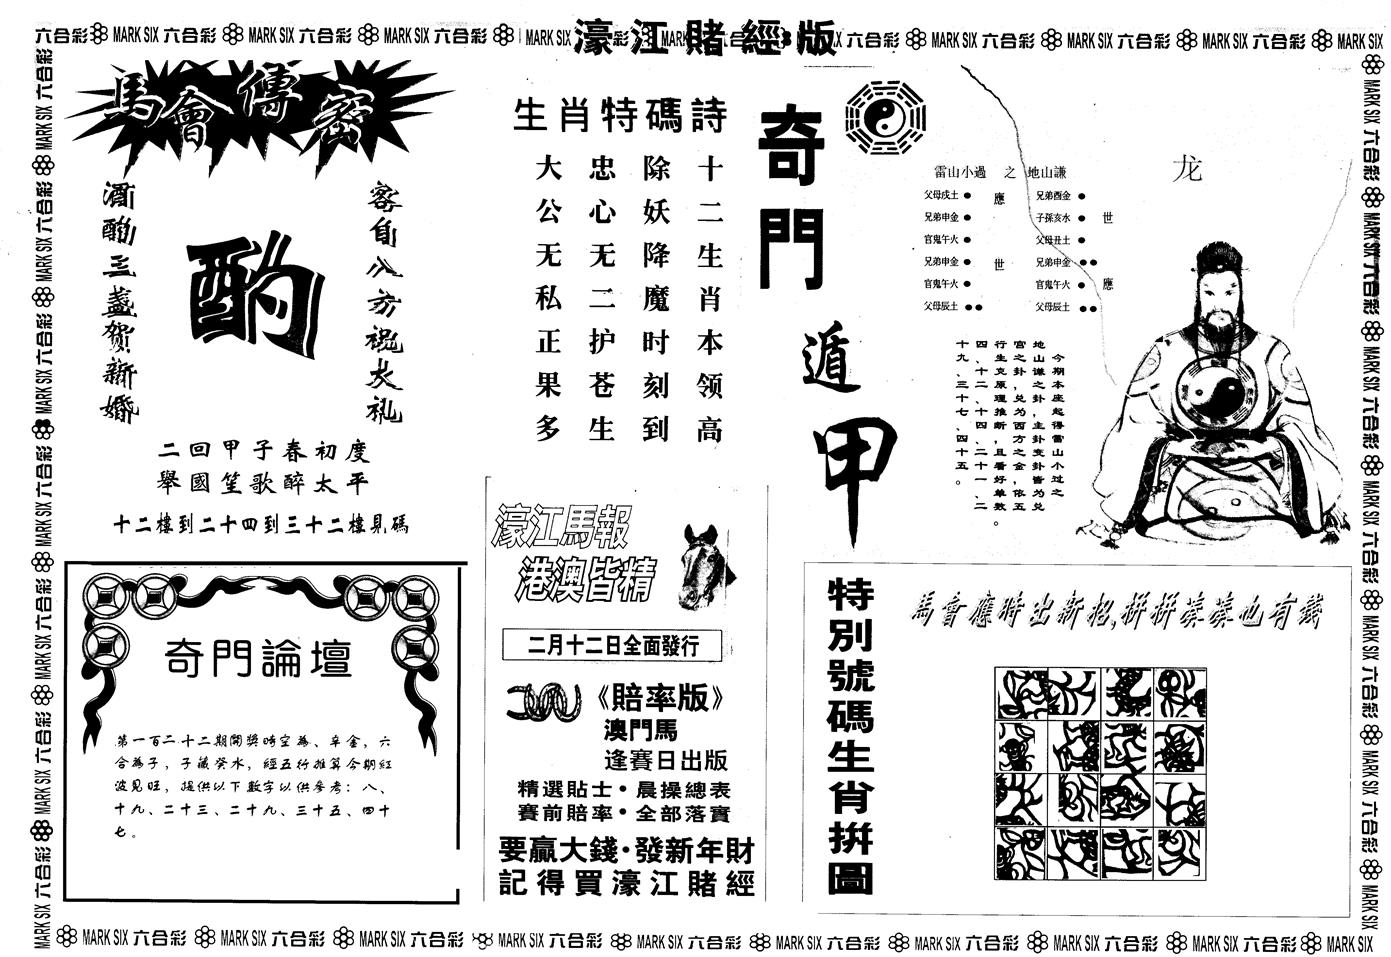 六合彩 MARK SIX 六合彩 MARK SIX 六合彩 MARK SIX 六合彩 MARK SIX
濠江賭經版
六合彩 MARK SIX 六合彩 MARK SIX 六合彩 MARK SIX 六合彩 MARK SIX
馬會傳密
客自八方祝大礼
酒酌三盞贺新婚
酌
二回甲子春初度
舉國笙歌醉太平
十二樓到二十四到三十二樓見碼
生肖特碼詩
十二生肖本领高
除妖降魔时刻到
忠心无二护苍生
大公无私正果多
奇門遁甲
雷山小過 之 地山謙
父母戌土 ● 應 兄弟酉金 ●
兄弟申金 ● 子孫亥水 ● 世
官鬼午火 ● 父母丑土 ●
兄弟申金 ● 世 兄弟申金 ●●
官鬼午火 ● 官鬼午火 ● 應
父母辰土 ●● 父母辰土 ●●
龙
今期本座起得雷山小过之
地山谦之卦，主卦变卦皆为兑
宫之卦，兑为西方之金，依五
行生克原理推断，且看好单数。
四、十二、十四、二十一、二
十九、三十七、四十五。
奇門論壇
第一百二十二期開獎時空為、辛金，六
合為子，子藏癸水，經五行推算今期紅
波見旺，提供以下數字以供參考：八、
十九、二十三、二十九、三十五、四十
七。
濠江馬報
港澳皆精
二月十二日全面發行
《賠率版》
澳門馬
逢賽日出版
精選貼士·晨操總表
賽前賠率·全部落實
要贏大錢·發新年財
記得買濠江賭經
特別號碼生肖拚圖
馬會應時出新招,拼拼湊湊也有錢
MARK SIX 六合彩 MARK SIX 六合彩 MARK SIX 六合彩 MARK SIX 六合彩 MARK SIX 六合彩 MARK SIX 六合彩 MARK SIX 六合彩 MARK SIX 六合彩 MARK SIX 六合彩 MARK SIX